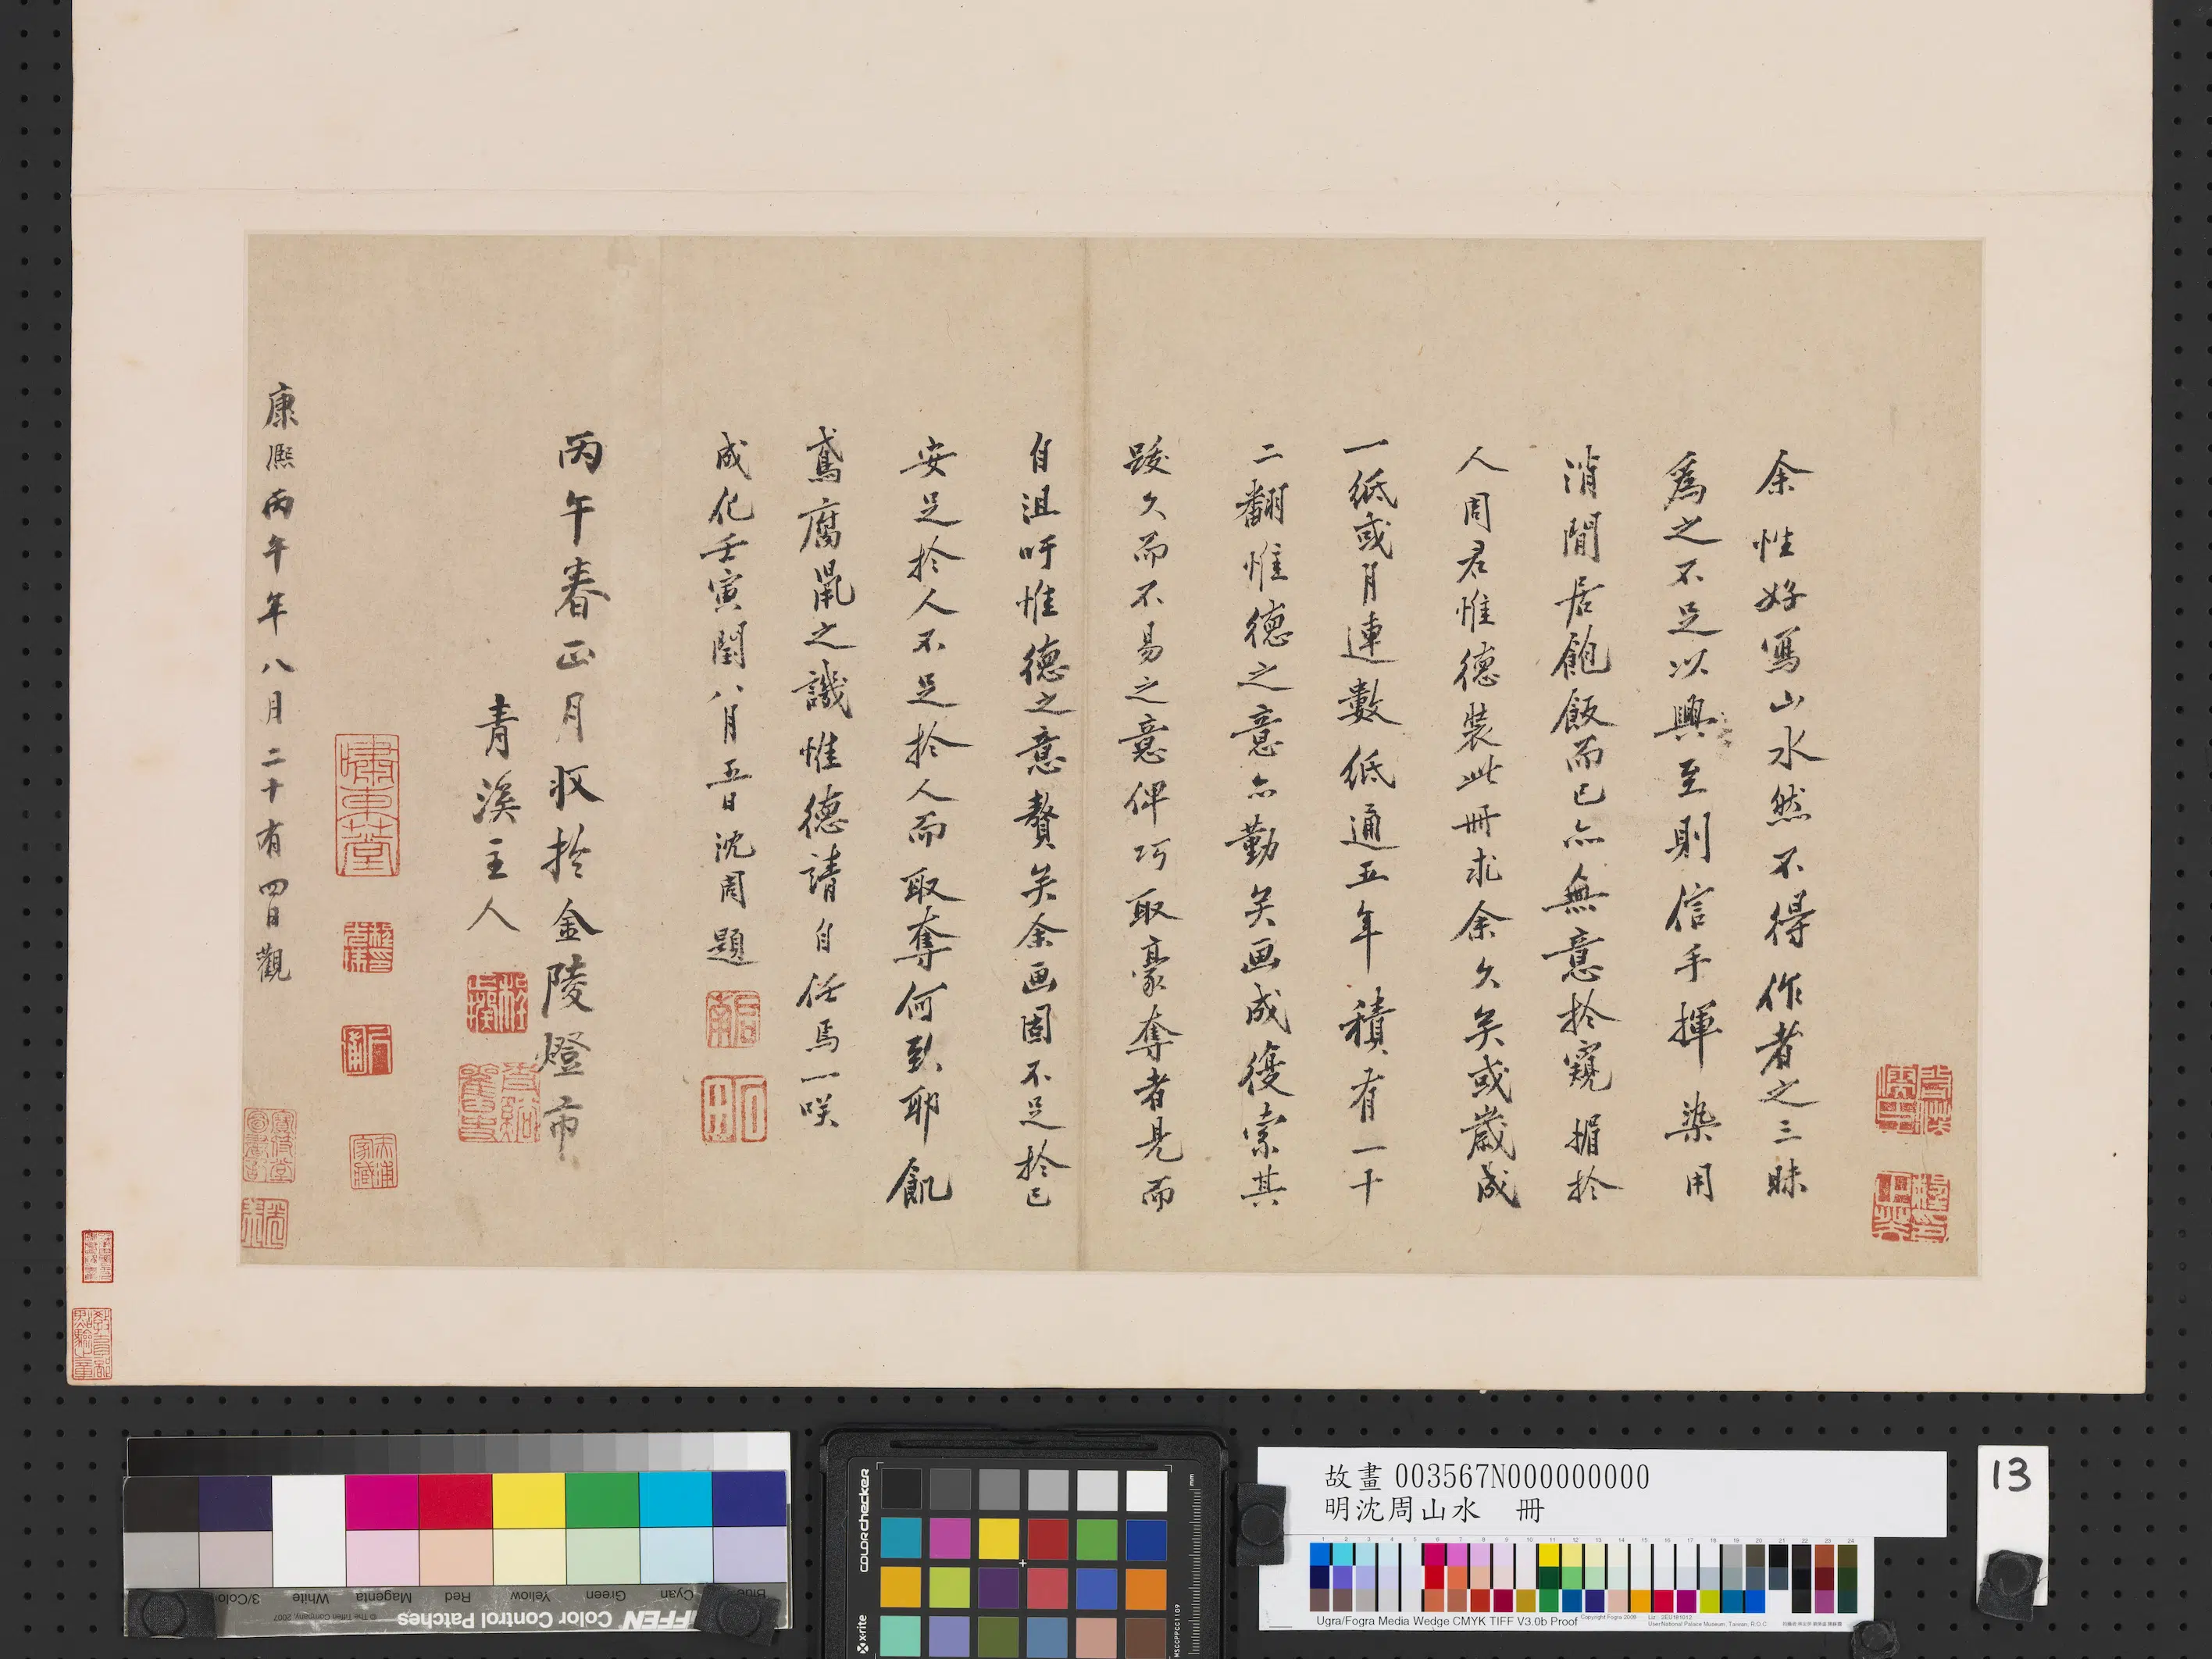 余性好寫山水然不得作者之三昧
為之不足以興至則信手揮染用
消閒居飽飯而已亦無意於窺搰於
人周君惟德裝此冊求余久矣或歲成
一紙或月連數紙通五年積有一十
二翻惟德之意亦勤矣画成復索其
跋久而不易之意俾巧取豪奪者見而
自沮吁惟德之意贅矣余画固不足於己
安足於人不足於人而取奪何致耶飢
鳶腐鼠之譏惟德請自任焉一咲
成化壬寅閏八月五日沈周題
丙午春正月収於金陵燈市
青溪主人
康熙丙午年八月二十有四日觀
故畫 003567N000000000
明沈周山水 冊
13
colorchecker
x-rite
mm
MSCCPPCC1109
TIFFEN Color Control Patches
© The Tiffen Company, 2007
Blue Cyan Green Yellow Red Magenta White 3/Color
Ugra/Fogra Media Wedge CMYK TIFF V3.0b Proof
Copyright Fogra 2008
User National Palace Museum, Taiwan, R.O.C